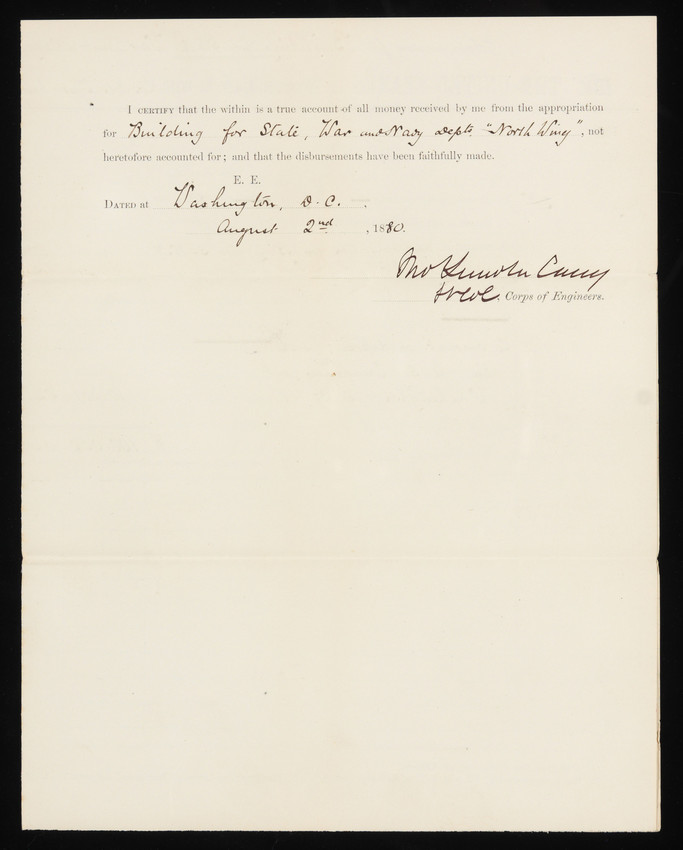 I CERTIFY that the within is a true account of all money received by me from the appropriation
for Building for State, War and Navy Depts. "North Wing", not
heretofore accounted for; and that the disbursements have been faithfully made.
E. E.
DATED at Washington, D. C.
August 2nd, 1880.
Thos Lincoln Casey
Lt Col, Corps of Engineers.